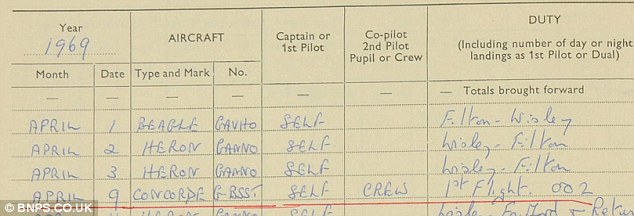 Year 1969 AIRCRAFT Captain or 1st Pilot Co-pilot 2nd Pilot Pupil or Crew DUTY (Including number of day or night landings as 1st Pilot or Dual)
Month Date Type and Mark No.
— — — — — — — Totals brought forward
APRIL 1 BEAGLE GAVHO SELF Filton - Wisley
APRIL 2 HERON GANNO SELF Wisley - Filton
APRIL 3 HERON GANNO SELF Wisley - Filton
APRIL 9 CONCORDE G-BSST SELF CREW 1st Flight. 002
HERON
© BNPS.CO.UK